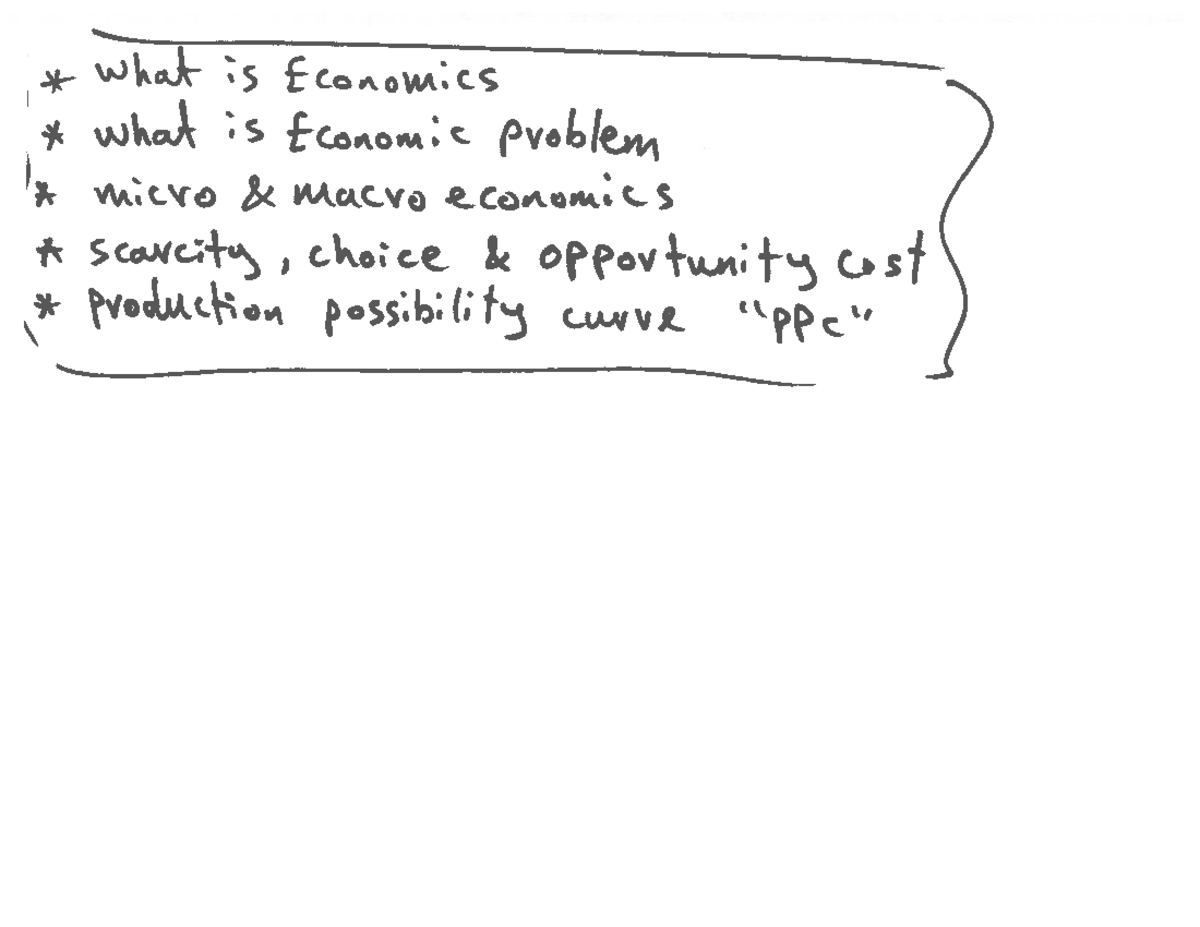 * what is Economics
* what is Economic problem
* micro & macro economics
* scarcity, choice & opportunity cost
* production possibility curve "PPC"